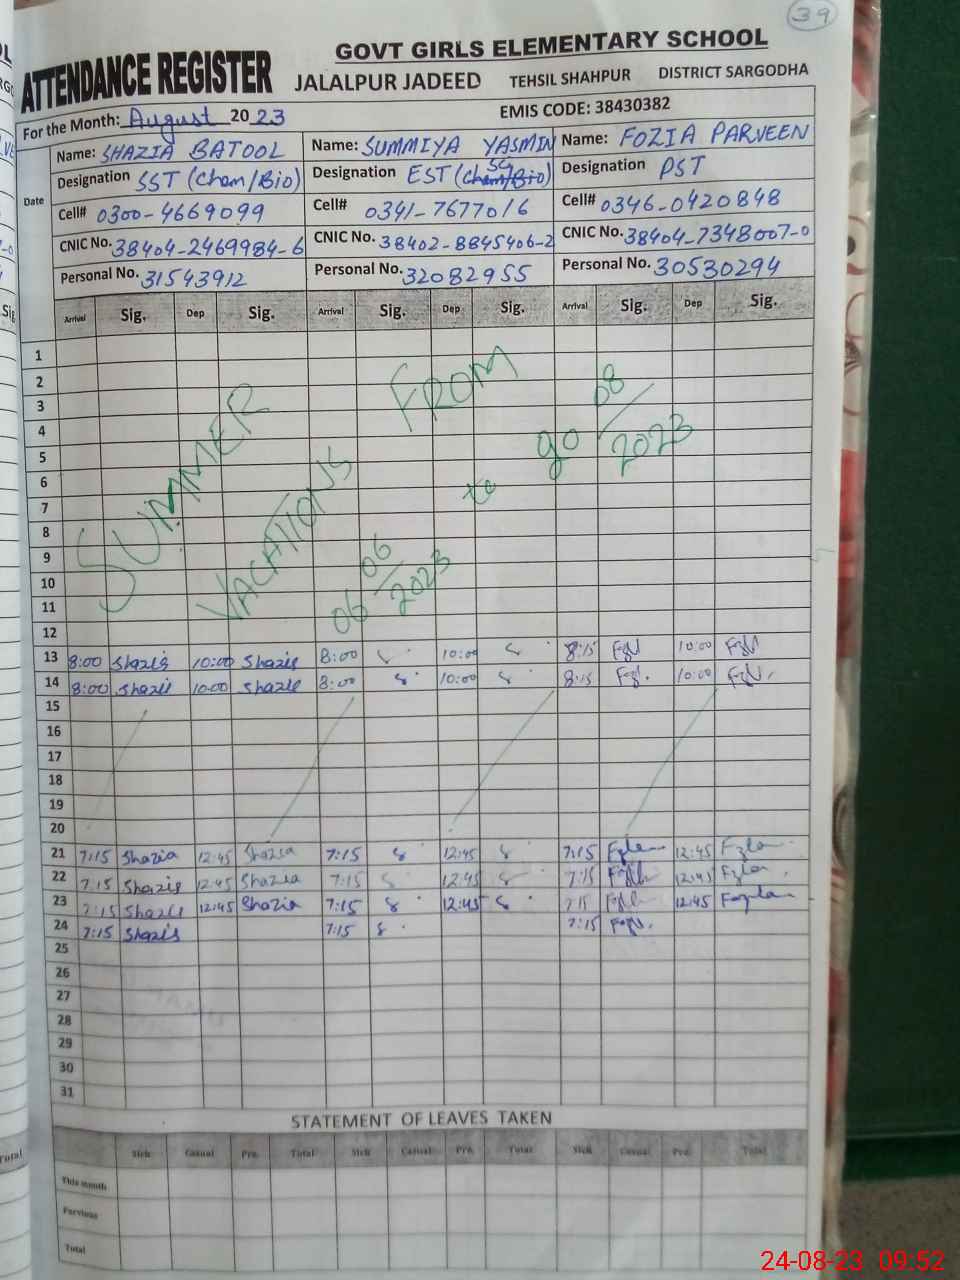 39
GOVT GIRLS ELEMENTARY SCHOOL
ATTENDANCE REGISTER JALALPUR JADEED TEHSIL SHAHPUR DISTRICT SARGODHA
For the Month: August 2023 EMIS CODE: 38430382
Date
Name: SHAZIA BATOOL Name: SUMMIYA YASMIN Name: FOZIA PARVEEN
Designation SST (Chem/Bio) Designation EST (SC) Designation PST
Cell# 0300-4669099 Cell# 0341-7677016 Cell# 0346-0420848
CNIC No. 38404-2469984-6 CNIC No. 38402-8845406-2 CNIC No. 38404-7348007-0
Personal No. 31543912 Personal No. 32082955 Personal No. 30530294
Arrival Sig. Dep Sig. Arrival Sig. Dep Sig. Arrival Sig. Dep Sig.
1
2
3
4
5
6
7
8
9
10
11
12
SUMMER VACATIONS FROM
06 06/2023 to 08/2023
13 8:00 Shazia 10:00 Shazia 8:00 10:00 8:15 10:00
14 8:00 Shazia 10:00 Shazia 8:00 10:00 8:15 10:00
15
16
17
18
19
20
21 7:15 Shazia 12:45 Shazia 7:15 12:45 7:15 12:45
22 7:15 Shazia 12:45 Shazia 7:15 12:45 7:15 12:45
23 7:15 Shazia 12:45 Shazia 7:15 12:45 7:15 12:45
24 7:15 Shazia 7:15 7:15
25
26
27
28
29
30
31
STATEMENT OF LEAVES TAKEN
Sick Casual Pre. Total Sick Casual Pre. Total Sick Casual Pre. Total
This month
Parvious
Total
24-08-23 09:52